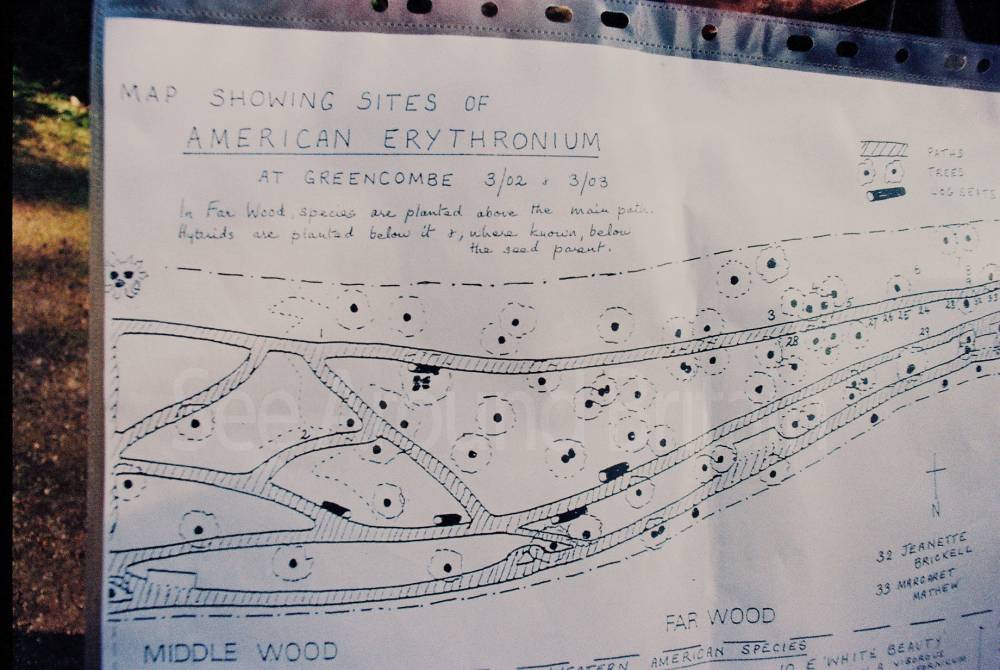 MAP SHOWING SITES OF
AMERICAN ERYTHRONIUM
AT GREENCOMBE 3/02 & 3/03
In Far Wood, species are planted above the main path.
Hybrids are planted below it &, where known, below
the seed parent.
PATHS
TREES
LOG SEATS
1
2
3
4
5
6
7
8
28
27 26 25 24 23
32 33
29
See Around Britain
N
32 JEANETTE
BRICKELL
33 MARGARET
MATHEW
FAR WOOD
MIDDLE WOOD
WESTERN AMERICAN SPECIES
10 E 'WHITE BEAUTY'
VIGOROUS